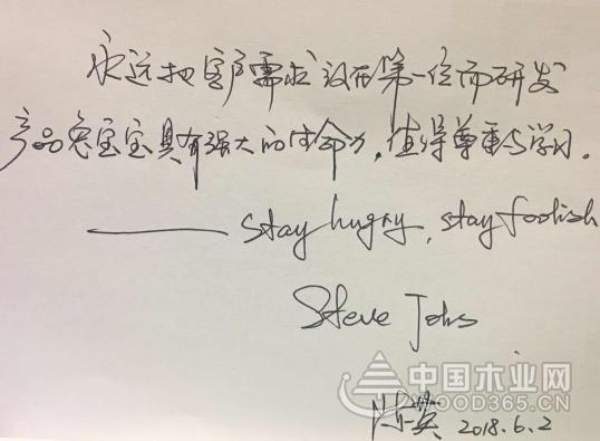 永远把客户需求设在第一位而研发
产品兔宝宝具有强大的生命力，值得尊重与学习。
—— stay hugry, stay foolish
Steve Jobs
2018.6.2
中国木业网
WOOD365.CN